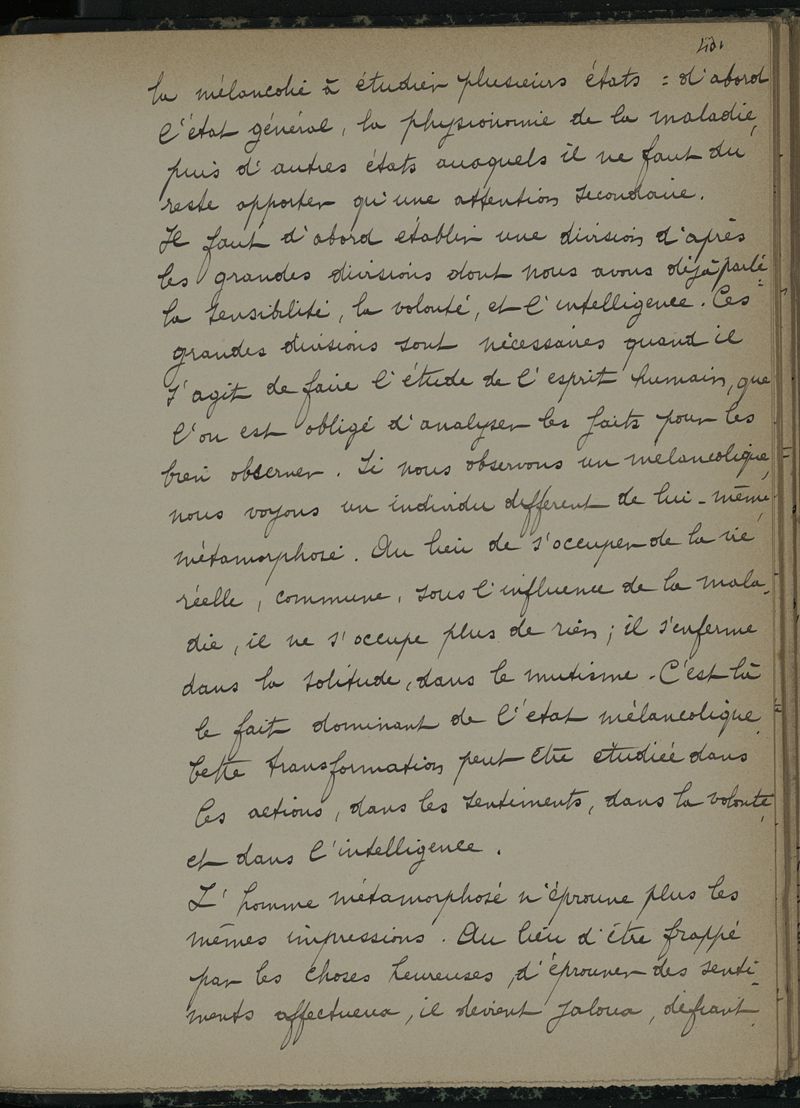 431
la mélancolie à étudier plusieurs états = d'abord
l'état général, la physionomie de la maladie,
puis d'autres états auxquels il ne faut du
reste apporter qu'une attention secondaire.
Il faut d'abord établir une division d'après
les grandes divisions dont nous avons déjà parlé =
la sensibilité, la volonté, et l'intelligence. Ces
grandes divisions sont nécessaires quand il
s'agit de faire l'étude de l'esprit humain, que
l'on est obligé d'analyser les faits pour les
bien observer. Si nous observons un mélancolique,
nous voyons un individu différent de lui-même,
métamorphosé. Au lieu de s'occuper de la vie
réelle, commune, sous l'influence de la mala-
die, il ne s'occupe plus de rien; il s'enferme
dans la solitude, dans le mutisme. C'est là
le fait dominant de l'état mélancolique.
Cette transformation peut être étudiée dans
les actions, dans les sentiments, dans la volonté,
et dans l'intelligence.
L'homme métamorphosé n'éprouve plus les
mêmes impressions. Au lieu d'être frappé
par les choses heureuses, d'éprouver des senti-
ments affectueux, il devient jaloux, défiant.